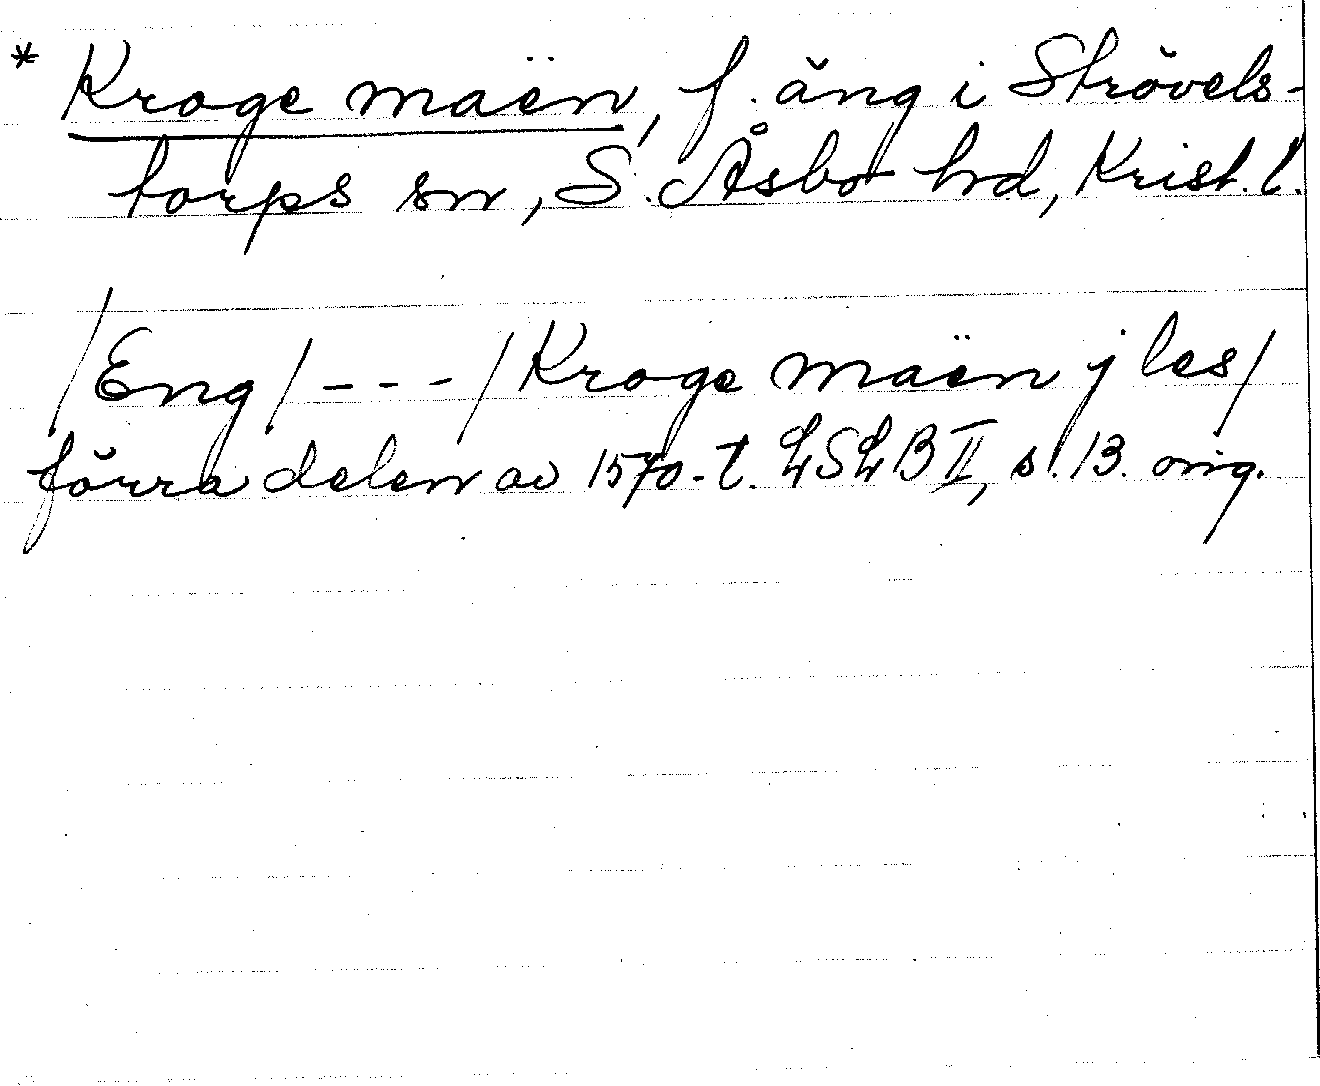 * Kroge maën, f. äng i Strövels-
torps sn, S. Åsbo hd, Krist. l.
/Eng/ - - - /Kroge maën j les/
förra delen av 1570-t. LSLB II, s. 13. orig.